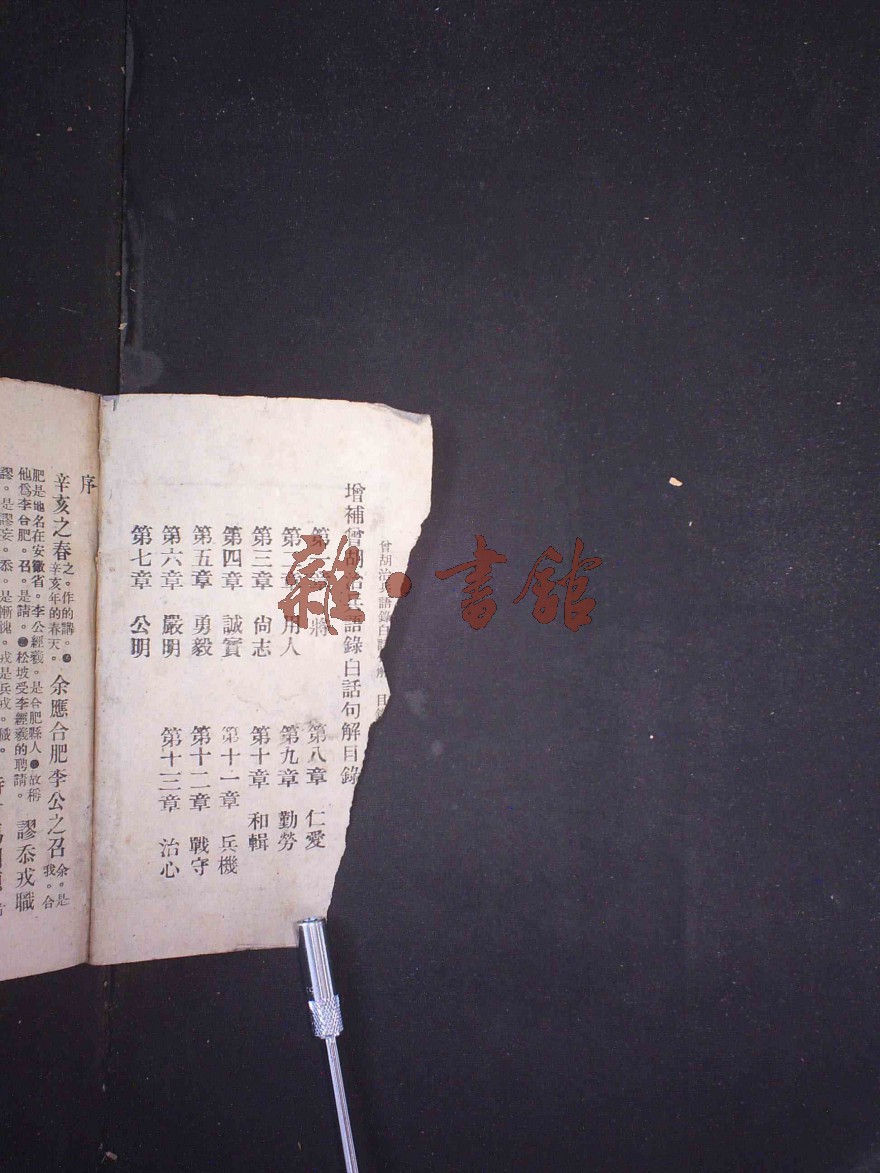 曾胡治兵語錄白話句解 目錄
增補曾胡治兵語錄白話句解目錄
第一章 將
第二章 用人
第三章 尙志
第四章 誠實
第五章 勇毅
第六章 嚴明
第七章 公明
第八章 仁愛
第九章 勤勞
第十章 和輯
第十一章 兵機
第十二章 戰守
第十三章 治心
序
辛亥之春
之。作的講。
辛亥年的春天。
余應合肥李公之召
余。是
我。合
肥是地名在安徽省。李公經羲。是合肥縣人●故稱
他爲李合肥。召。是請。●松坡受李經羲的聘請。
謬忝戎職
謬。是謬妄。忝。是慚愧。戎是兵戎。職。
雜·書館